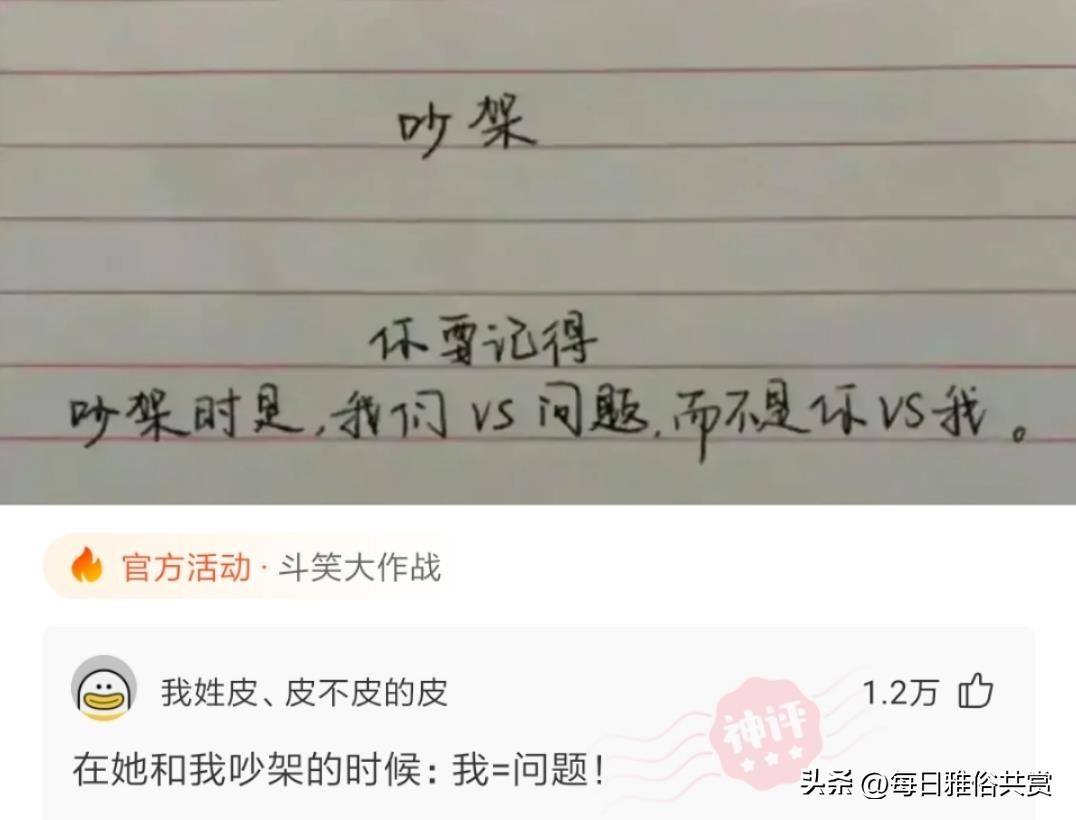 吵架
你要记得
吵架时是,我们 VS 问题,而不是你VS我。
官方活动·斗笑大作战
我姓皮、皮不皮的皮
1.2万
神评
在她和我吵架的时候:我=问题!
头条 @每日雅俗共赏